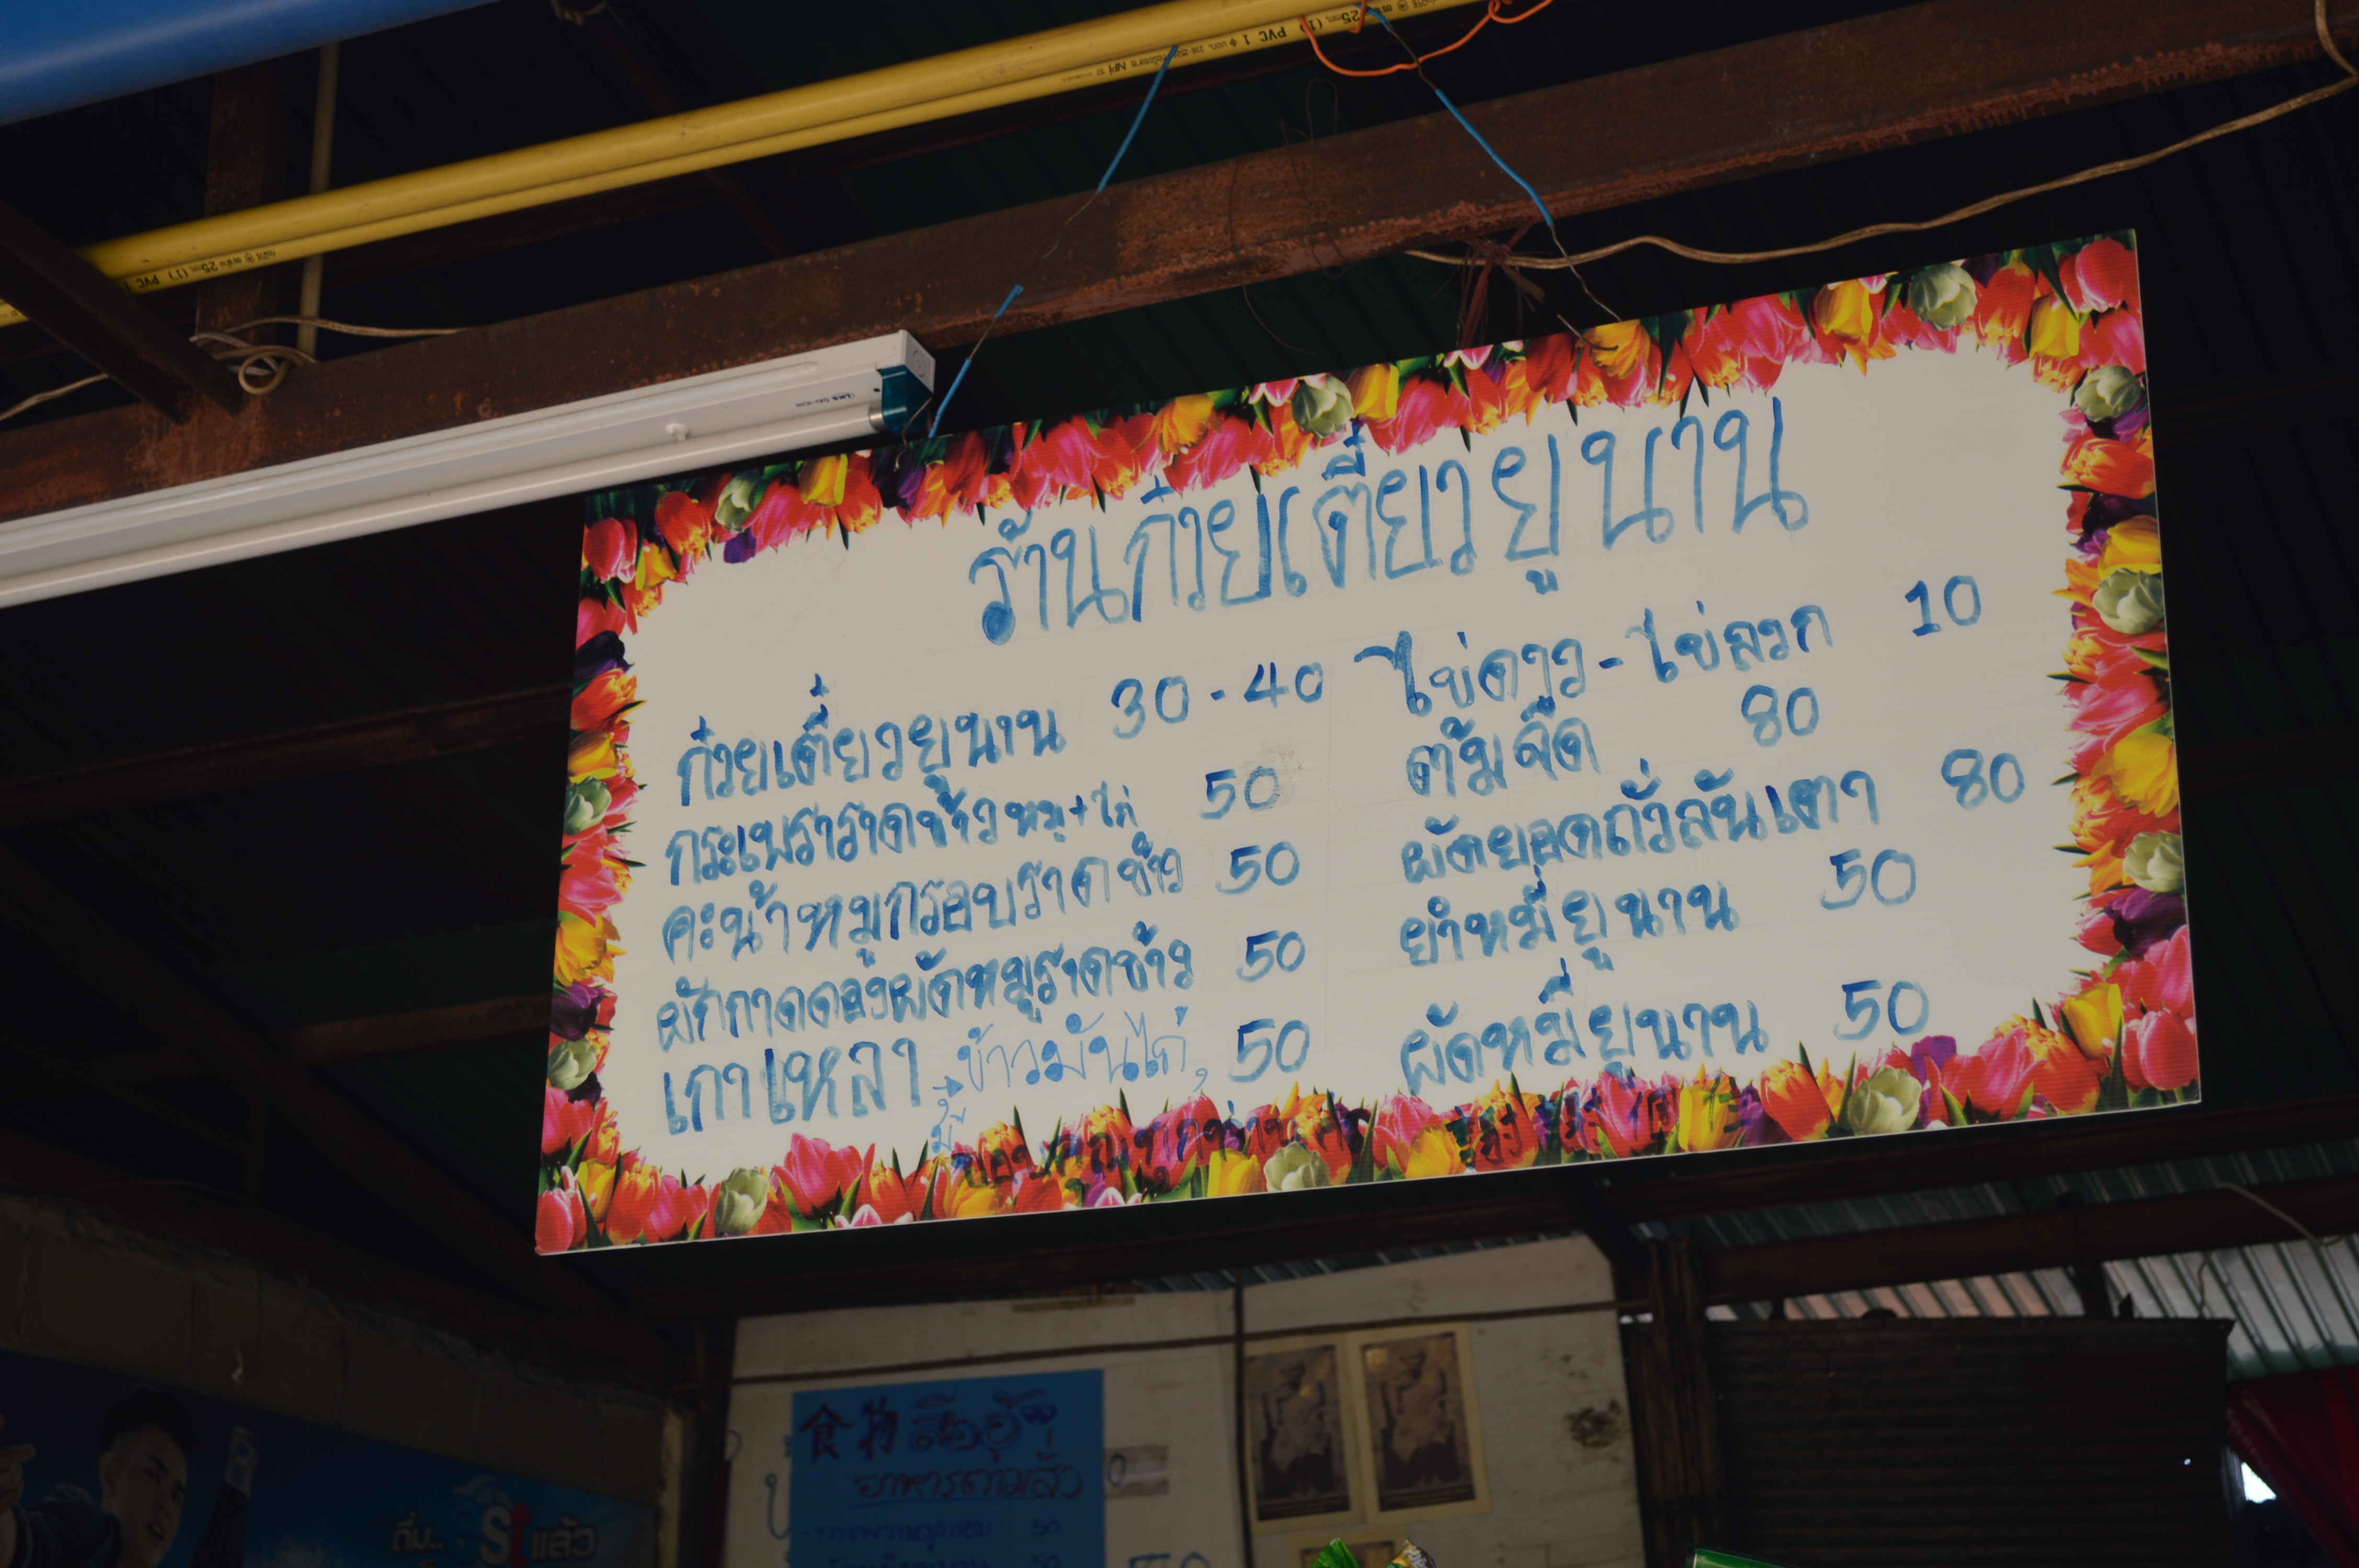 ร้านก๋วยเตี๋ยวยูนาน
ก๋วยเตี๋ยวยูนาน 30-40
กระเพราราดข้าวหมู+ไก่ 50
คะน้าหมูกรอบราดข้าว 50
ผักกาดดองผัดหมูราดข้าว 50
เกาเหลา ข้าวมันไก่ 50
มี
ไข่ดาว-ไข่ลวก 10
ต้มจืด 80
ผัดยอดถั่วลันเตา 80
ยำหมี่ยูนาน 50
ผัดหมี่ยูนาน 50
ขอบคุณทุกท่าน
食物
อาหารตามสั่ง
50
50
ดื่ม.. est แล้ว
PVC 1